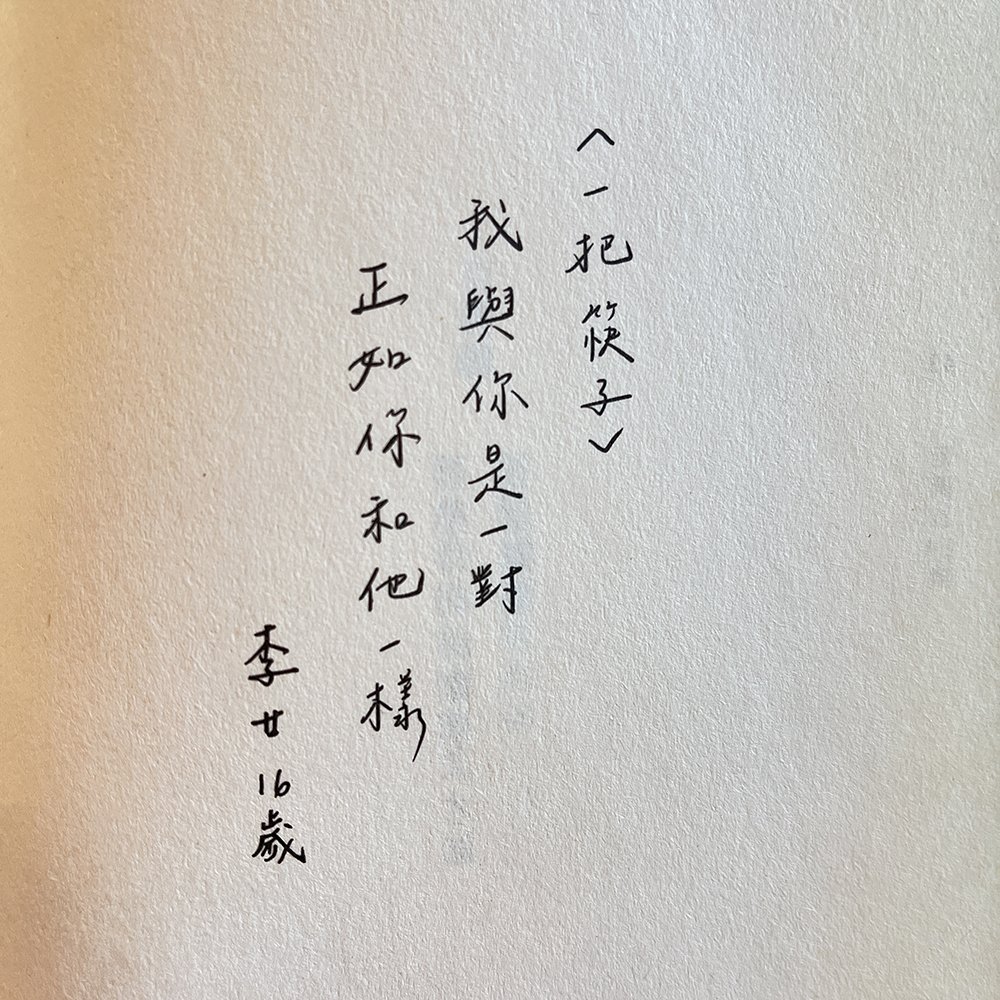 〈一把筷子〉
我與你是一對
正如你和他一樣
李廿 16歲